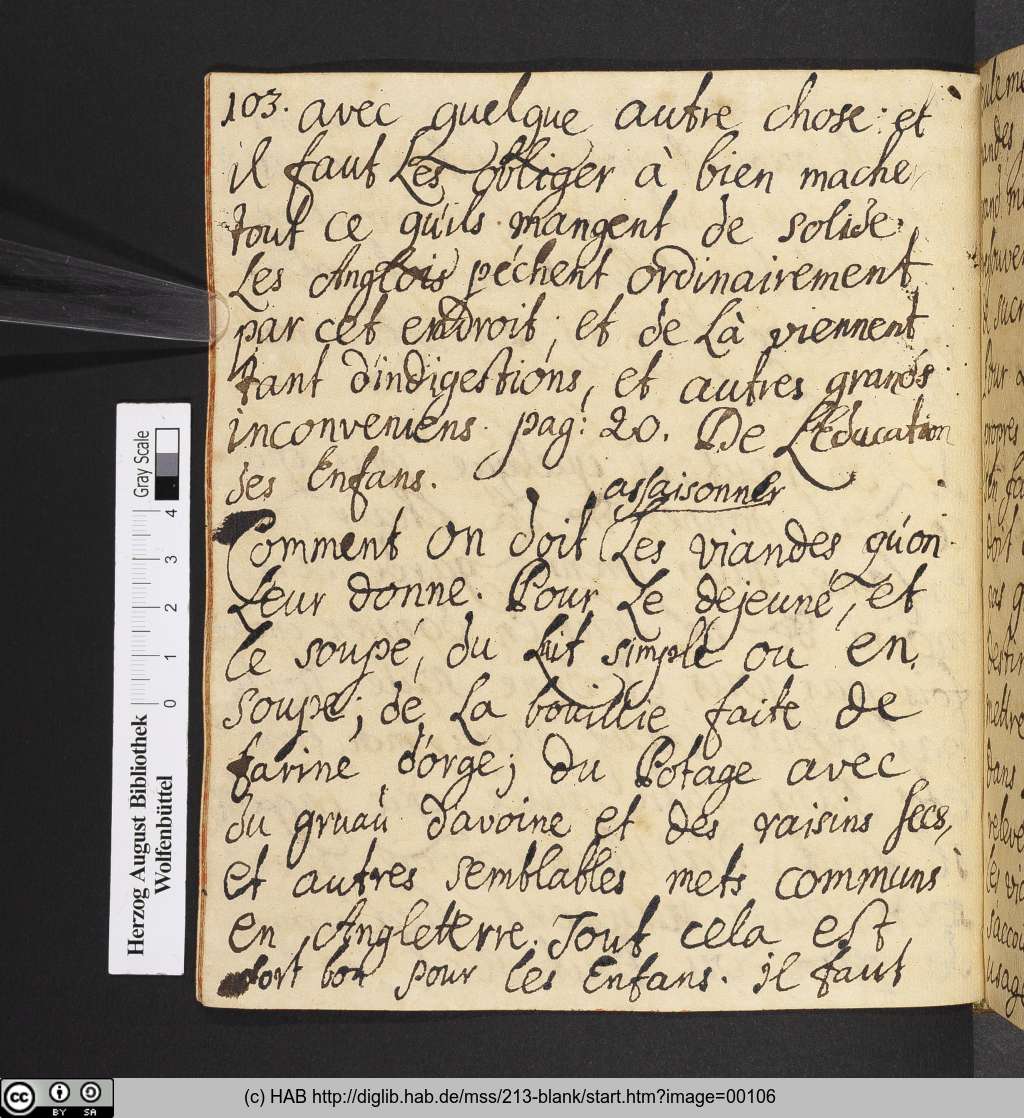 103. avec quelque autre chose: et
il faut Les obliger à bien mache
tout ce qu'ils mangent de solide.
Les Anglois péchent ordinairement
par cet endroit; et de Là viennent
tant d'indigestions, et autres grands
inconveniens. pag: 20. De L'Education
des Enfans.
assaisonner
Comment on doit Les viandes, qu'on
Leur donne. Pour Le dejeuné, et
le soupé, du Lait simple ou en
soupe; de La bouillie faite de
farine d'orge; du Potage avec
du gruau d'avoine et des raisins secs,
et autres semblables mets communs
en Angleterre. Tout cela est
fort bon pour les Enfans. il faut
Gray Scale
0 1 2 3 4
Herzog August Bibliothek
Wolfenbüttel
cc BY SA
(c) HAB http://diglib.hab.de/mss/213-blank/start.htm?image=00106